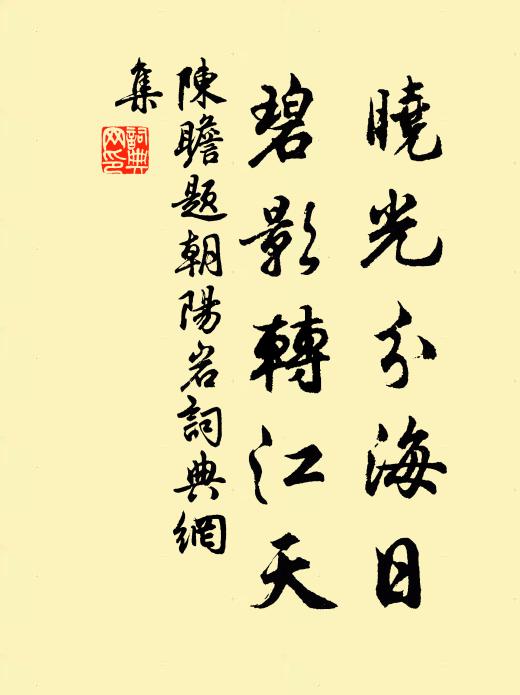 曉光分海日
碧影轉江天
陳瞻題朝陽岩詞典網
集
詞典
网印